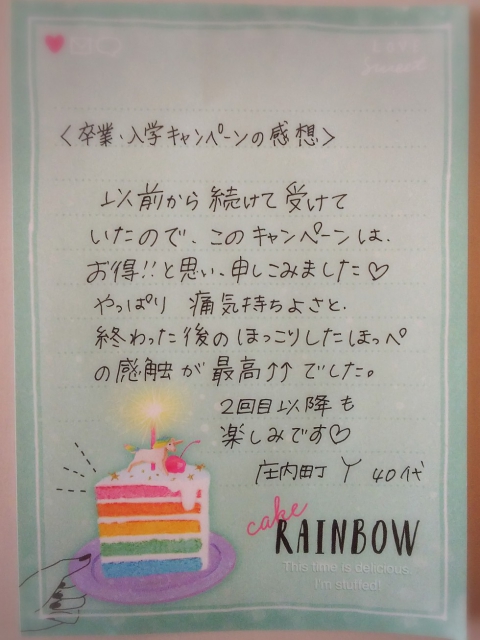 LOVE
Sweet
<卒業・入学キャンペーンの感想>
以前から続けて受けて
いたので、このキャンペーンは、
お得!!と思い、申しこみました♡
やっぱり 痛気持ちよさと、
終わった後のほっこりしたほっペ
の感触が最高↑↑でした。
2回目以降も
楽しみです♡
庄内町 Y 40代
cake
RAINBOW
This time is delicious.
I'm stuffed!